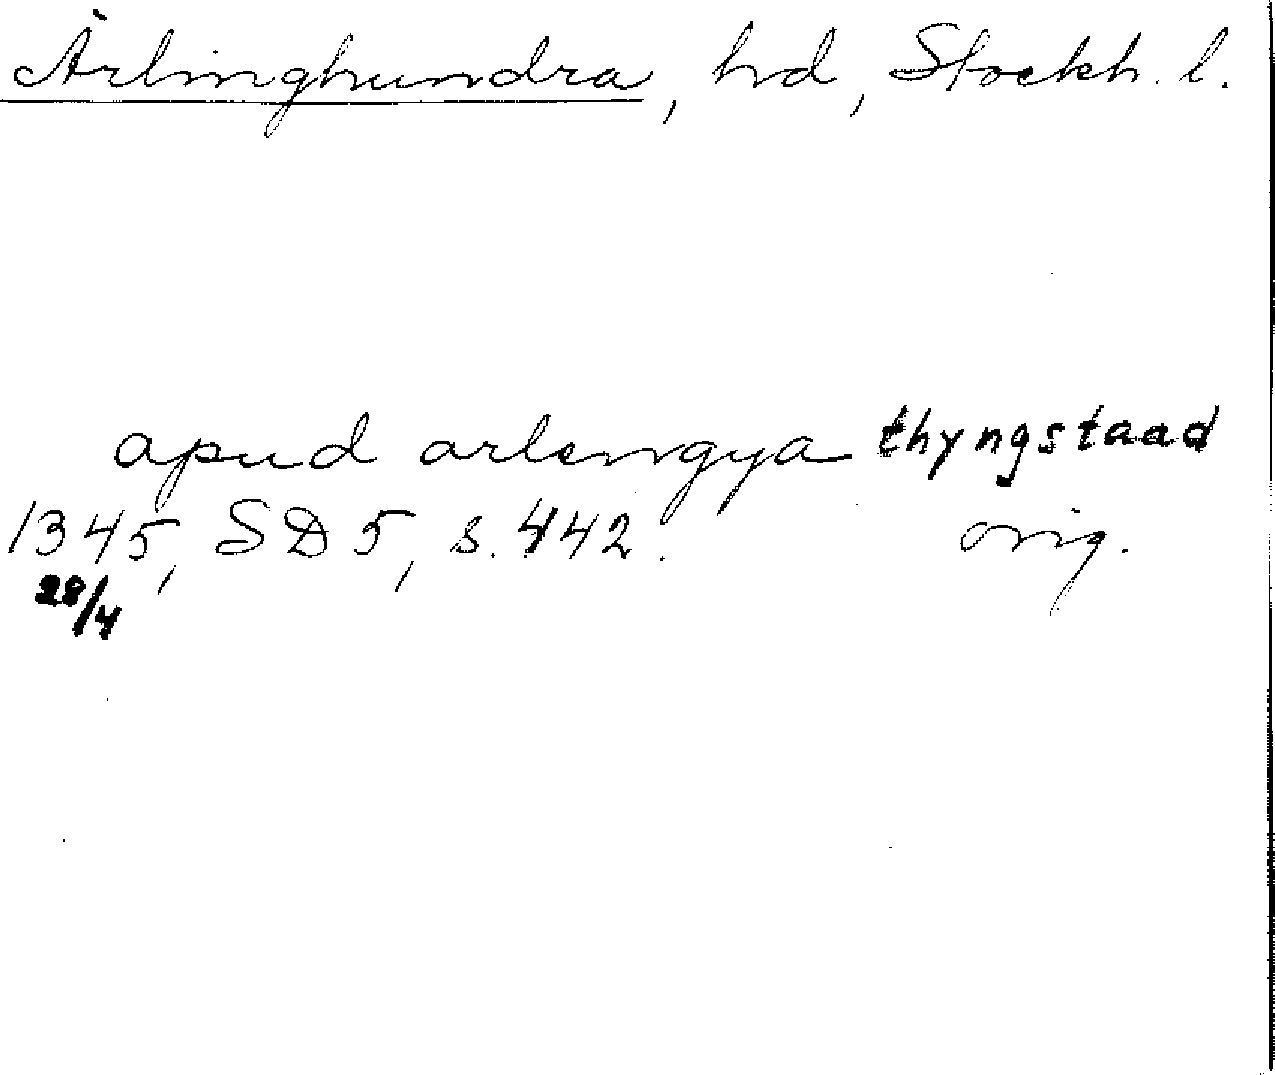 Ärlinghundra, hd, Stockh. l.
apud arlengya thyngstaad
1345, SD 5, s. 442. orig.
28/4